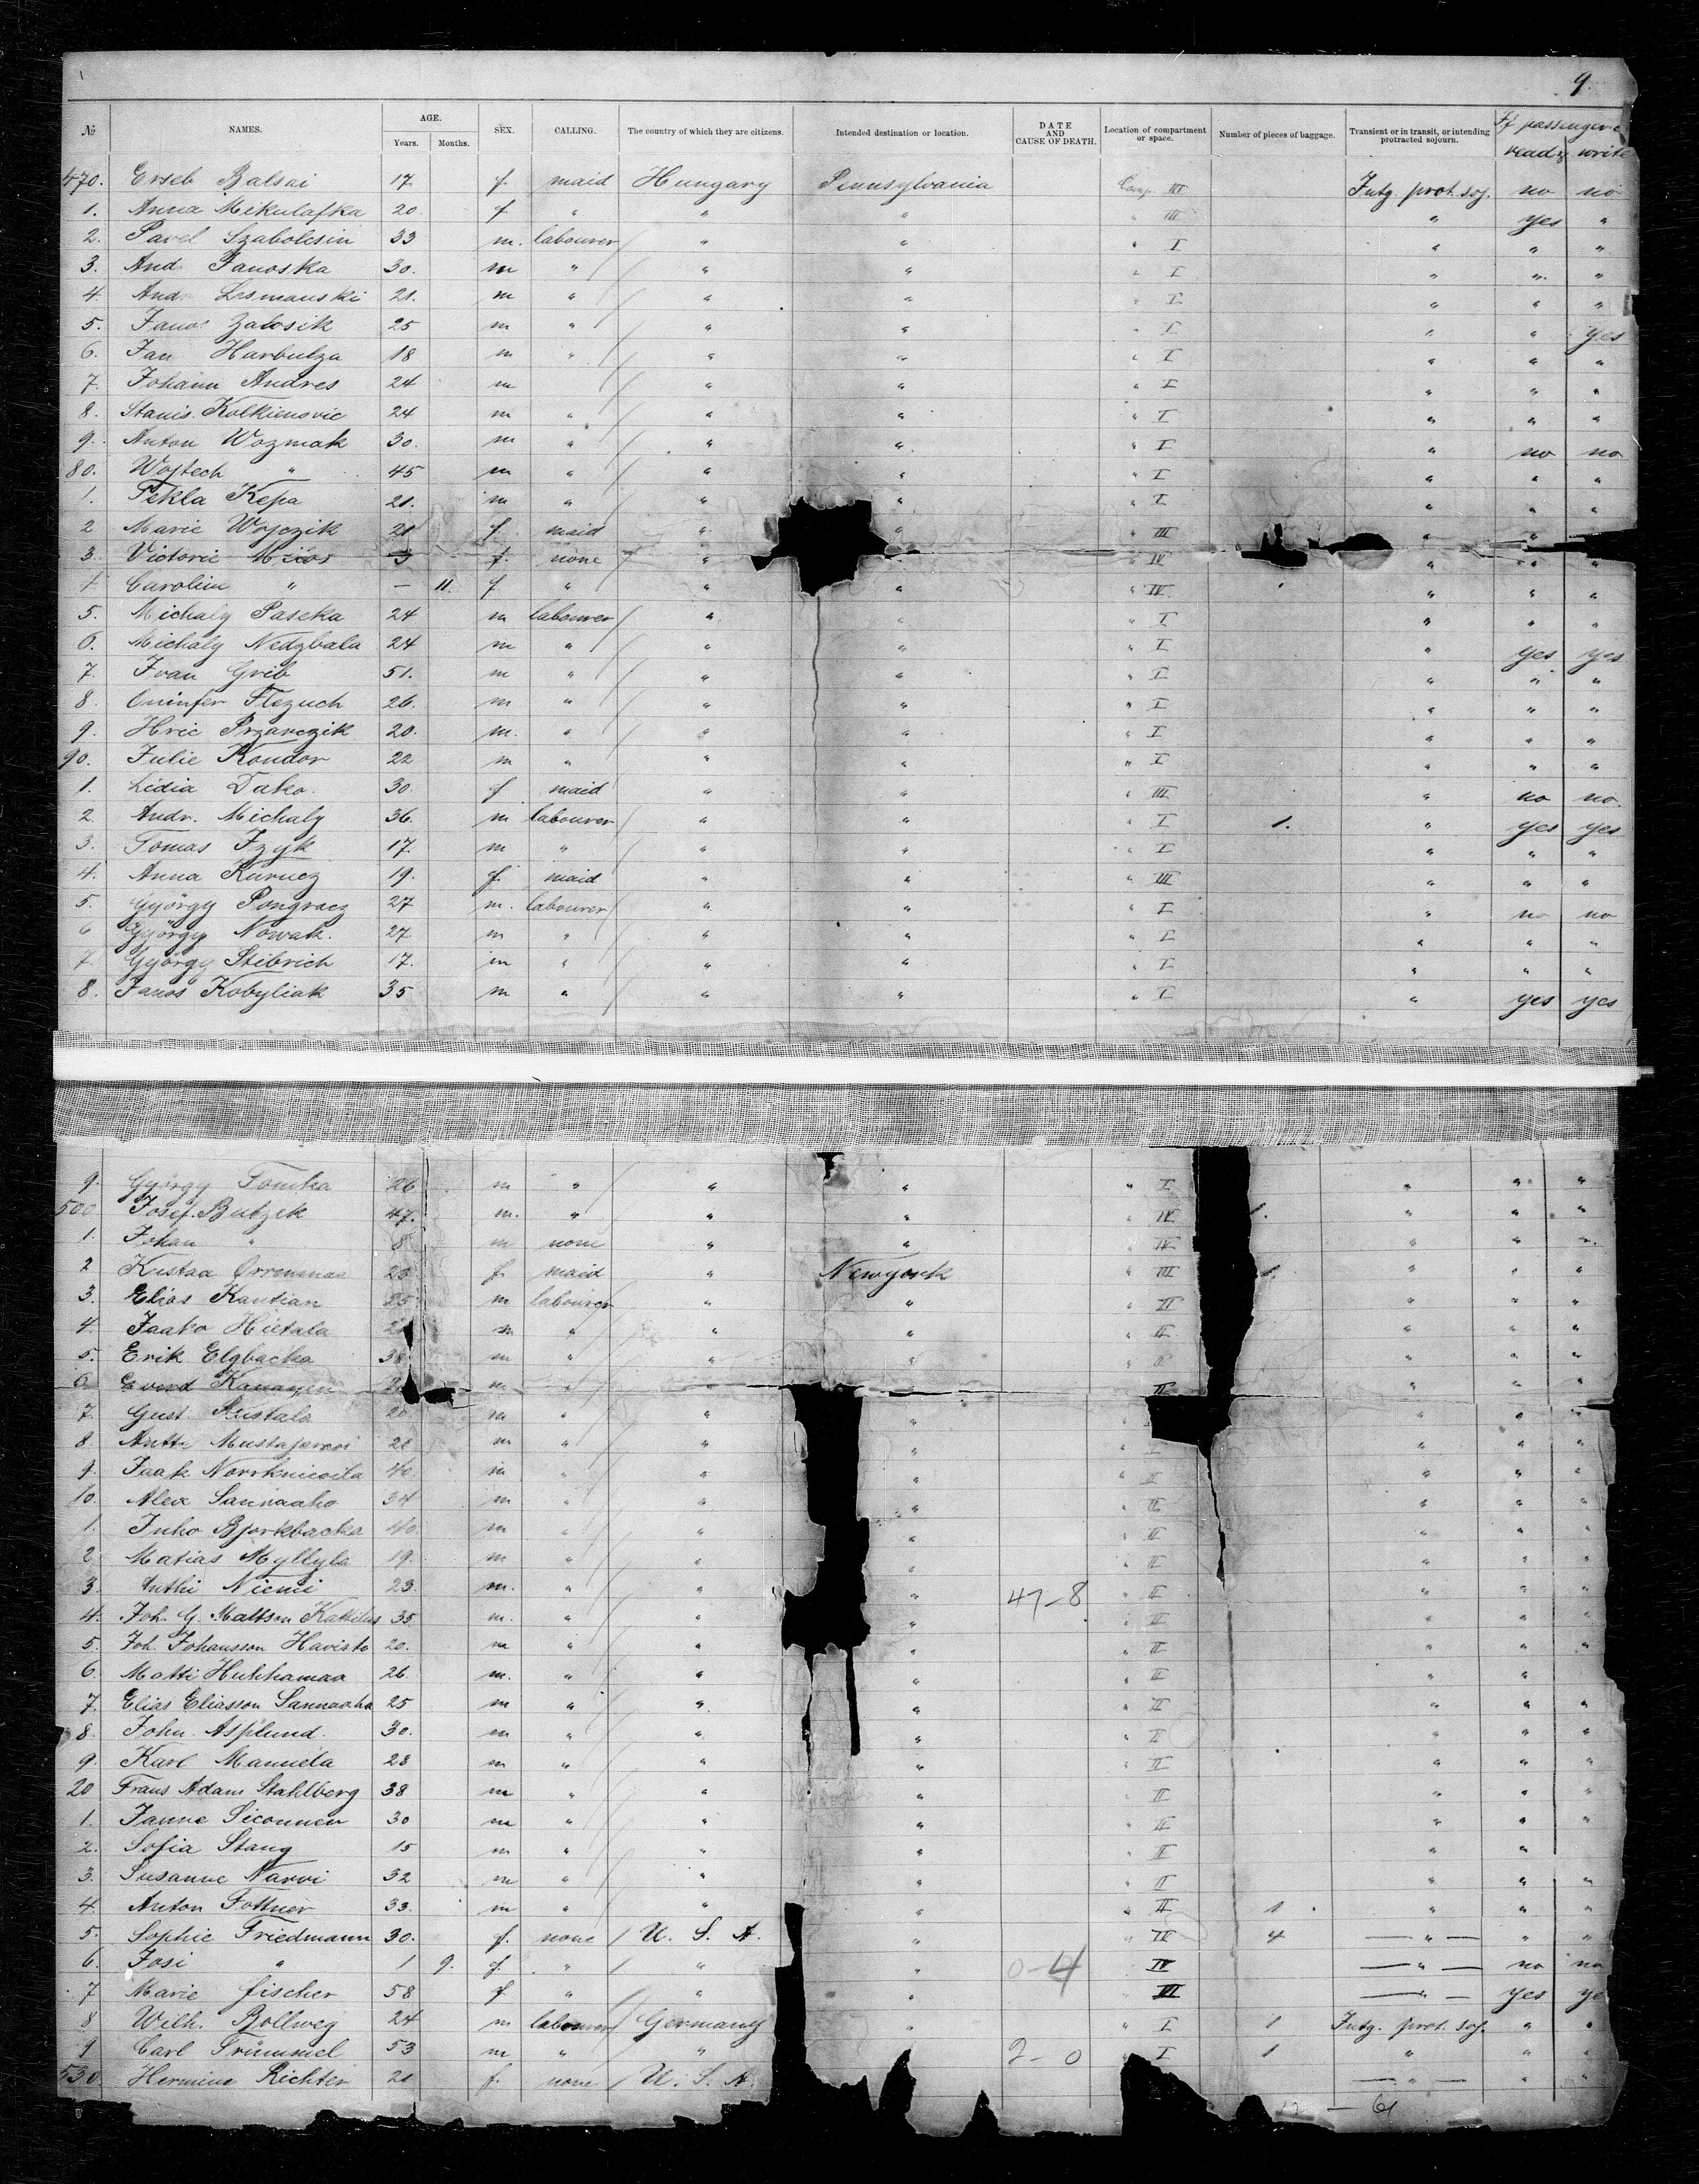 9.
№ NAMES. AGE. Years. Months. SEX. CALLING. The country of which they are citizens. Intended destination or location. DATE AND CAUSE OF DEATH. Location of compartment or space. Number of pieces of baggage. Transient or in transit, or intending protracted sojourn. If passengers read & write
470. Erseb Balsai 17 f. maid Hungary Pennsylvania Comp. III Intg. prot. soj. no no
1. Anna Mikulafka 20 f " " " " III " yes "
2. Pavel Szabolcsin 33 m. labourer " " " I " " "
3. And. Janoska 30. m " " " " I " " "
4. And. Lismanski 21. m " " " " I " " "
5. Janos Zalosik 25 m " " " " I " " yes
6. Jan Harbulza 18 m " " " " I " " "
7. Johann Andres 24 m " " " I " " "
8. Stanis. Kolkienovic 24 m " " " " I " " "
9. Anton Wozniak 30. m " " " " I " no no
80. Wojtech " 45 m " " " I " " "
1. Tekla Kepa 21. m " " " I " " "
2 Marie Wojczik 21 f. maid " " " III " "
3. Victorie Mzios 3 f. none " " IV " " "
4 Carolin " — 11. f " " " " IV " " "
5. Michaly Paseka 24 m labourer " " " I " " "
6. Michaly Nedzbala 24 m " " " " I " yes yes
7. Ivan Grib 51. m " " " " I " " "
8. Oninfer Flezuch 26. m " " " " I " " "
9. Hric Przanczik 20. m. " " " " I " " "
90. Julie Kondor 22 m " " " " I " " "
1. Lidia Dako. 30. f maid " " " III " no no.
2. Andr. Michaly 36. m labourer " " " I 1. " yes yes
3. Tomas Izyk 17. m " " " " I " " "
4. Anna Kurucz 19. f. maid " " " III " " "
5. György Pongracz 27 m. labourer " " " I " no no
6 György Nowak. 27 m " " " " I " " "
7. György Stibrich 17. m " " " " I " " "
8. Janos Kobyliak 35 m " " " " I " yes yes
9. György Tomka 26 m " " " " I " " "
500 Josef Butzek 47. m. " " " " IV 1. " " "
1. Johan " 8 m none " " " IV " " "
2 Kustaa Orrenmaa 23 f. maid " Newyork " III 1. " " "
3. Elias Kautian 25 m labourer " " " II " " "
4. Jaako Hietala m " " " " II " " "
5. Erik Elgbacka 38 m " " " " II " " "
6 Everd Kananen m " " II " " "
7 Gust. Kustala 20 m " " " " " "
8. Antti Mustajarvi 21 m " " " " " "
9. Jaak Norrkniivila 40. m " " " " II " " "
10. Alex Sannaaho 34 m " " " " II " " "
1. Juho Bjorkbacka 40. m " " " " II " " "
2 Matias Myllyla 19. m " " " " II " " "
3. Anthi Niemi 23. m. " " " 47-8 " II " " "
4. Joh. G. Mattson Kattilus 35. m. " " " " II " " "
5. Joh. Johansson Havisto 20. m " " " " II " " "
6. Matti Huhhamaa 26 m. " " " " II " "
7. Elias Eliasson Sannaaho 25 m " " " " II " " "
8. John. Asplund. 30. m " " " " II " " "
9. Karl Manuela 28 m " " " " II " " "
20 Frans Adam Stahlberg 38 m " " " " II " " "
1. Janne Siconnen 30 m " " " " II " " "
2. Sofia Stang 15 m " " " " II " "
3. Susanne Narvi 32 m " " " " II " " "
4. Anton Fottner 33. m " " " " II 1 " " "
5. Sophie Friedmann 30. f. none U. S. A. " " IV 4 — " — " "
6. Josi " 1 9. f. " " " 0-4 IV — " — no no
7 Marie Fischer 58 f " " " III — " — yes ye
8 Wilh. Bollweg 24 m labourer Germany " " I 1 Intg. prot. soj. " "
9 Carl Trümmel 53 m " " 2-0 " I 1 " " "
530 Hermine Richter 21 f. none U. S. A. — " — " "
12 — 61